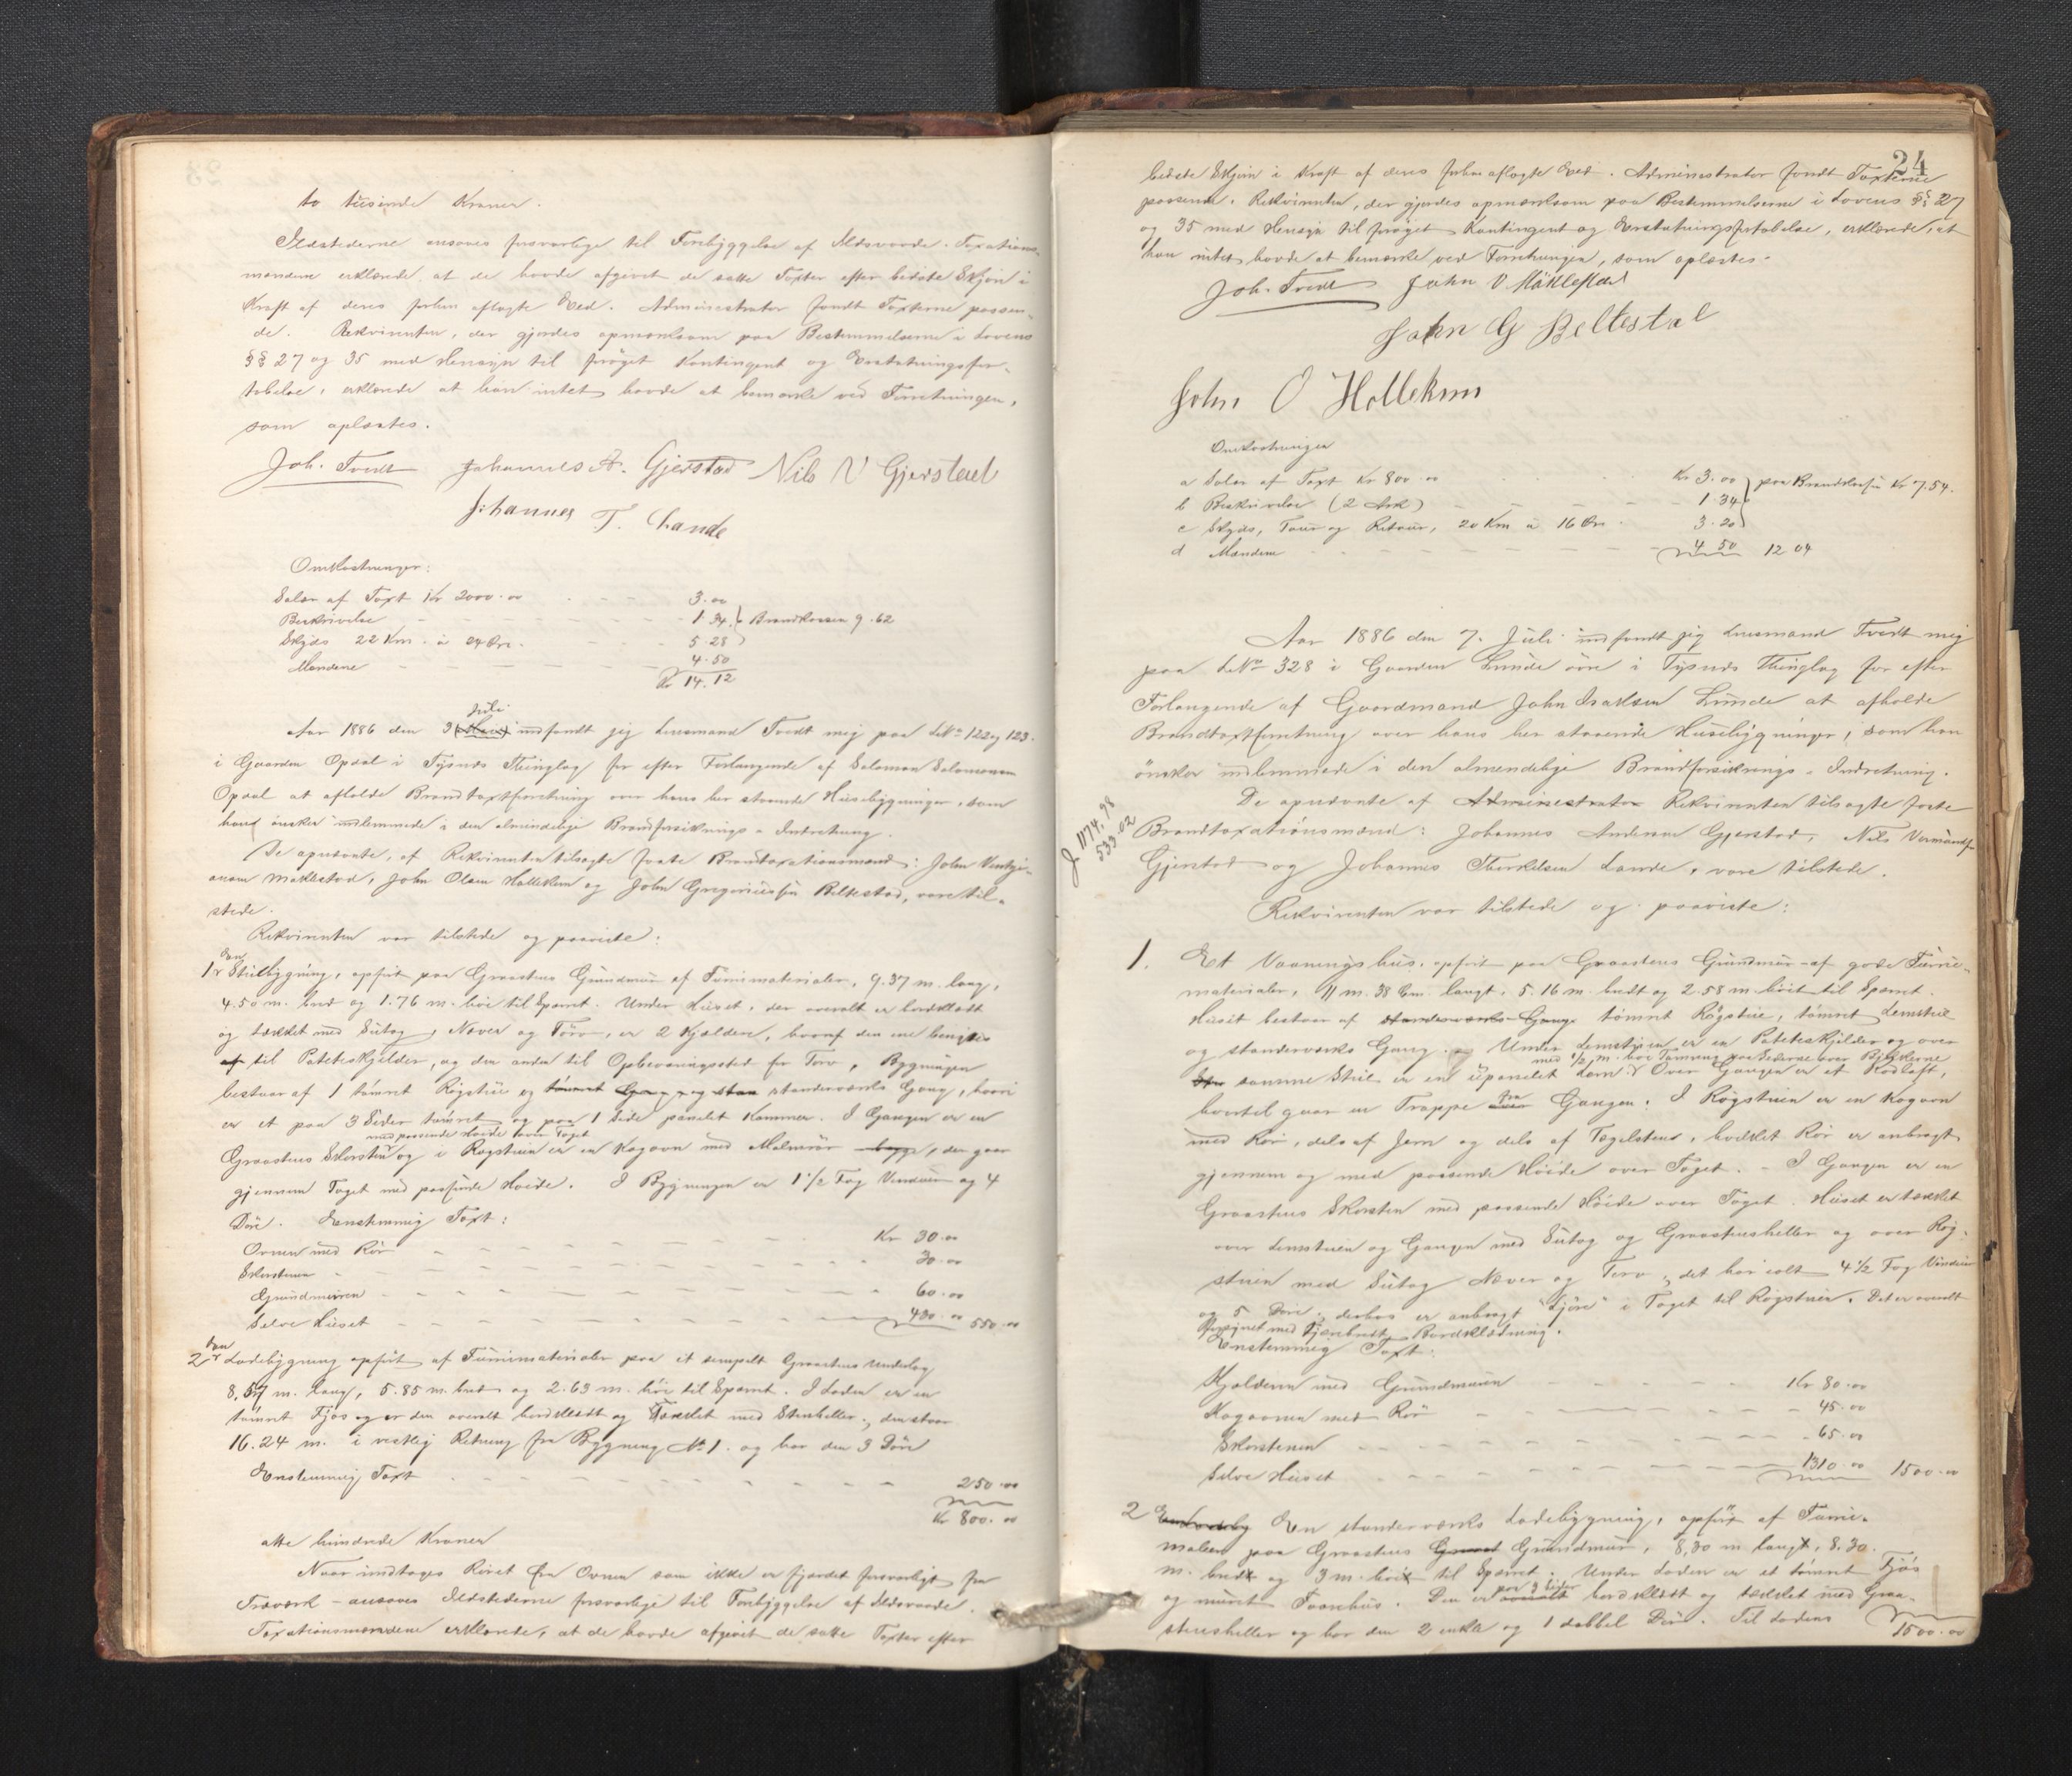 to tusinde Kroner.
Ildstederne ansaaes forsvarlige til Forebyggelse af Ildsvaade. Taxations-
mændene erklærede, at de havde afgivet de satte Taxter efter bedste Skjøn i
Kraft af deres forhen aflagte Eed. Administrator fandt Taxterne passen-
de. Rekvirenten, der gjordes opmærksom paa Bestemmelserne i Lovens
§§ 27 og 35 med Hensyn til forøget Kontingent og Erstatningsfor-
tabelse, erklærede at han intet havde at bemærke ved Forretningen,
som oplæstes.
Joh. Tvedt Johannes A. Gjerstad Nils V Gjerstad
Johannes T. Lande
Omkostninger:
Salær af Taxt Kr 2000.00 3.00
Beskrivelse 1.34 Brandkassen 9.62
Skyds 22 Km. à 24 Øre. 5.28
Mændene 4.50
Kr 14.12
Juli
Aar 1886 den 3 indfandt jeg Lensmand Tvedt mig paa LNo 122 og 123.
i Gaarden Opdal i Tysnes Thinglag for efter Forlangende af Salomon Salomonsen
Opdal at afholde Brandtaxtforretning over hans her staaende Husebygninger, som
han ønsker indlemmede i den almindelige Brandforsikrings-Indretning.
De opnævnte, af Rekvirenten tilsagte faste Brandtaxationsmænd: John
Maklestad, John Olsen Hallekum og John Gregoriussen Beltestad, vare til-
stede.
Rekvirenten var tilstede og paaviste:
En
1 Stuebygning, opført paa Graastens Grundmur af Furumaterialer, 9.37 m. lang,
4.50 m. bred og 1.76 m. høi til Sparret. Under Huset, der overalt er bordklædt
og tækket med Sutag, Næver og Torv, er 2 Kjældere, hvoraf den ene benyttes
af til Poteteskjelder, og den anden til Opbevaringssted for Torv. Bygningen
bestaar af 1 tømret Røgstue og tømret Gang og staa standerværks Gang, hvori
er et paa 3 Sider tømret og paa 1 Side panelet Kammer. I Gangen er en
med passende Høide over Taget
Graastens Skorsten og i Røgstuen er en Kogovn med Malmrør, der gaar
gjennem Taget med passende Høide. I Bygningen er 1 1/2 Fag Vinduer og 4
Døre. Enstemmig Taxt:
Ovnen med Rør Kr 30.00
Skorstenen 30.00
Grundmuren 60.00
Selve Huset 430.00 550.00
En
2 Ladebygning opført af Furumaterialer paa et simpelt Graastens Underlag
8.57 m. lang, 5.85 m. bred og 2.63 m. høi til Sparret. I Laden er en
tømret Fjøs og er den overalt bordklædt og Tækket med Stenheller; den staar
16.24 m. i vestlig Retning fra Bygning No 1. og har den 3 Døre
Enstemmig Taxt 250.00
Kr 800.00
otte hundrede Kroner
Naar undtages Røret fra Ovnen som ikke er fjernet forsvarligt fra
Træværk - ansaaes Ildstederne forsvarlige til Forebyggelse af Ildsvaade.
Taxationsmændene erklærede, at de havde afgivet de satte Taxter efter
24
bedste Skjøn i Kraft af deres forhen aflagte Eed. Administrator fandt Taxterne
passende. Rekvirenten, der gjordes opmærksom paa Bestemmelserne i Lovens §§ 27
og 35 med Hensyn til forøget Kontingent og Erstatningsfortabelse, erklærede, at
han intet havde at bemærke ved Forretningen, som oplæstes.
Joh. Tvedt John V Mäklestad
John G Beltestad
John O Hollekum
Omkostninger
a Salær af Taxt Kr 800.00 Kr 3.00 paa Brandkassen Kr 7.54.
b Beskrivelse (2 Ark) 1.34
c Skyds, Tour og Retour, 20 Km à 16 Øre 3.20
d Mændene 4 50 12 04
Aar 1886 den 7. Juli indfandt jeg Lensmand Tvedt mig
paa LNo 328 i Gaarden Lunde øvre i Tysnes Thinglag for efter
Forlangende af Gaardmand John Isaksen Lunde at afholde
Brandtaxtforretning over hans her staaende Husebygninger, som han
ønsker indlemmede i den almindelige Brandforsikrings-Indretning.
J 1174.98
533.02
De opnævnte af Administrator Rekvirenten tilsagte faste
Brandtaxationsmænd: Johannes Andersen Gjerstad, Nils Vermundsen
Gjerstad og Johannes Thorkelsen Lande, vare tilstede.
Rekvirenten var tilstede og paaviste:
1. Et Vaaningshus, opført paa Graastens Grundmur af gode Furu-
materialer, 11 m. 38 Cm. langt, 5.16 m. bredt og 2.58 m. høit til Sparret.
Huset bestaar af standerværks Gang tømret Røgstue, tømret Lemstue
og standerværks Gang. Under Lemstuen er en Poteteskjelder og over
med 1/2 m. høi Tømring paa Siderne over Bjelkerne
samme Stue er en upanelet Lem. Over Gangen er et Kodloft,
hvortil gaar en Trappe fra Gangen. I Røgstuen er en Kogovn
med Rør, dels af Jern og dels af Teglstens, hvilket Rør er anbragt
gjennem og med passende Høide over Taget. - I Gangen er en
Graastens Skorsten med passende Høide over Taget. Huset er tækket
over Lemstuen og Gangen med Sutag og Graastensheller og over Røg-
stuen med Sutag Næver og Torv, det har ialt 4 1/2 Fag Vinduer
og 5 Døre, derhos er anbragt "Ljore" i Taget til Røgstuen. Det er overalt
forsynet med tjærebredt Bordklædning.
Enstemmig Taxt:
Kjælderen med Grundmuren Kr 80.00
Kogovnen med Rør 45.00
Skorstenen 65.00
Selve Huset 1310.00 1500.00
2 En standerværks Ladebygning, opført af Furu-
paa Graastens Grundmur, 8,30 m langt, 8.30.
m. bredt og 3 m. høit til Sparret. Under Laden er et tømret Fjøs
paa 3 Sider
og muret Faarehus. Den er overalt bordklædt og tækket med Graa-
stensheller og har den 2 enkle og 1 dobbel Dør. Til Ladens
1500.00